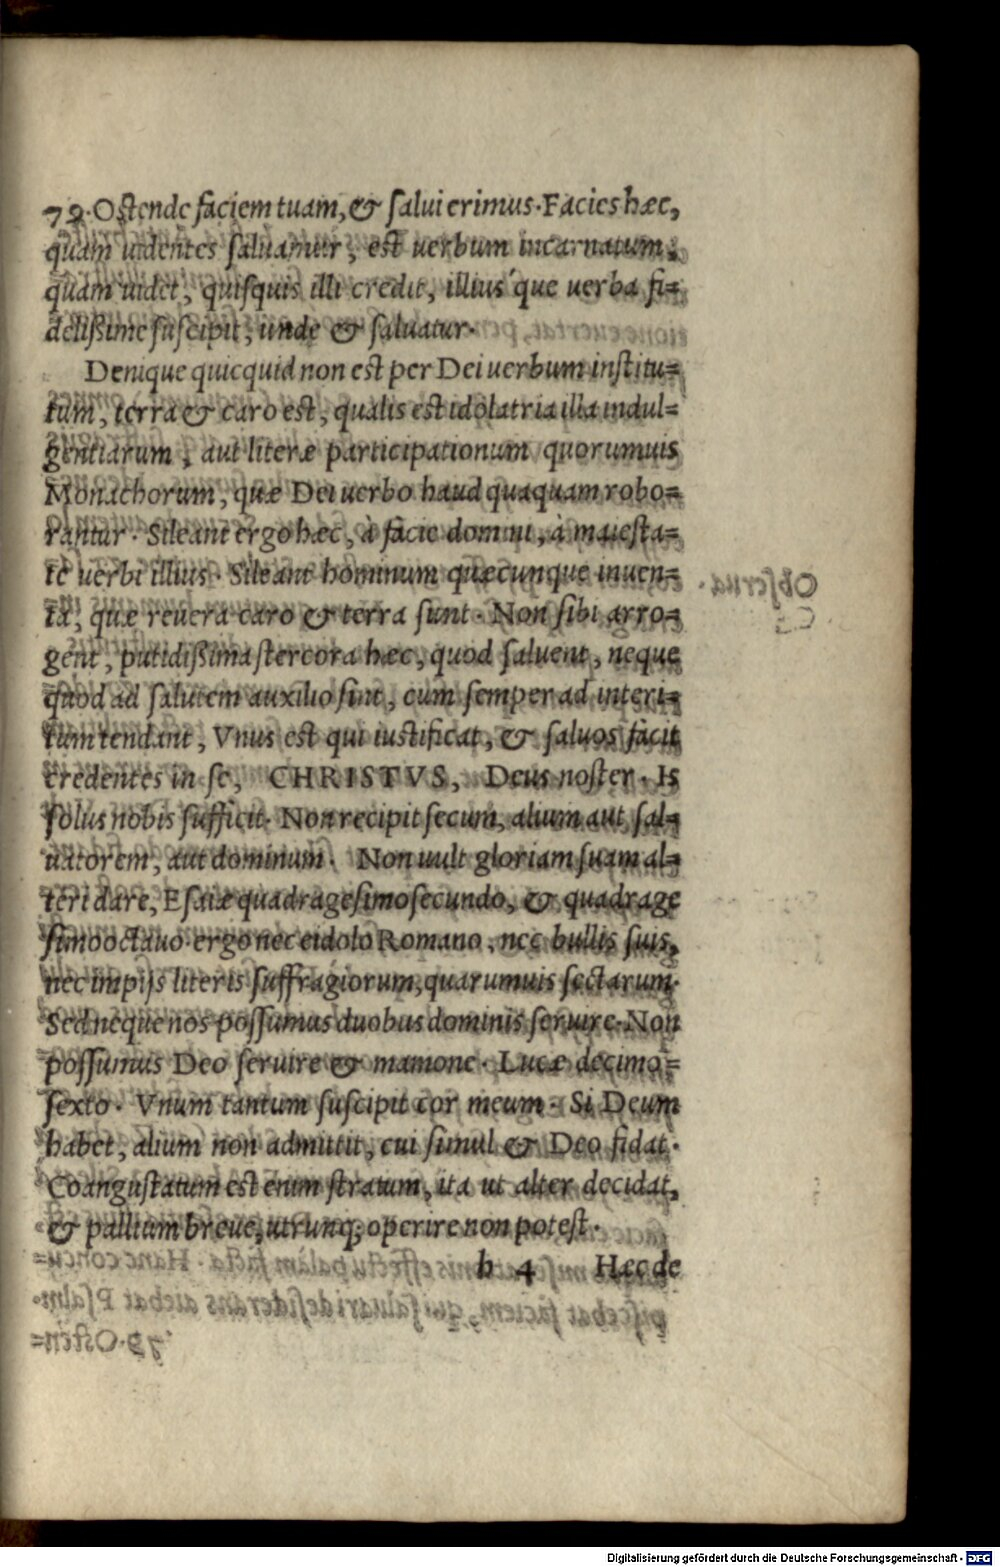 79. Ostende faciem tuam, & salui erimus. Facies hæc,
quam uidentes saluamur, est uerbum incarnatum,
quam uidet, quisquis illi credit, illius´que uerba fi=
delißime suscipit, unde & saluatur.
Denique quicquid non est per Dei uerbum institu=
tum, terra & caro est, qualis est idolatria illa indul=
gentiarum, aut literæ participationum quorumuis
Monachorum, quæ Dei uerbo haud quaquam robo=
rantur. Sileant ergo hæc, à facie domini, à maiesta=
te uerbi illius. Sileant hominum quæcunque inuen=
ta, quæ reuera caro & terra sunt. Non sibi arro=
gent, putidißima stercora hæc, quod saluent, neque
quod ad salutem auxilio sint, cum semper ad interi=
tum tendant, Vnus est qui iustificat, & saluos facit
credentes in se, CHRISTVS, Deus noster. Is
solus nobis sufficit. Non recipit secum, alium aut sal=
uatorem, aut dominum. Non uult gloriam suam al=
teri dare, Esaiæ quadragesimosecundo, & quadrage
simooctauo. ergo nec eidolo Romano, nec bullis suis,
nec impijs literis suffragiorum, quarumuis sectarum.
Sed neque nos possumus duobus dominis seruire. Non
possumus Deo seruire & mamone. Lucæ decimo=
sexto. Vnum tantum suscipit cor meum. Si Deum
habet, alium non admittit, cui simul & Deo fidat.
Coangustatum est enim stratum, ita ut alter decidat,
& pallium breue, utrunq; operire non potest.
h 4 Hæc de
Digitalisierung gefördert durch die Deutsche Forschungsgemeinschaft - DFG